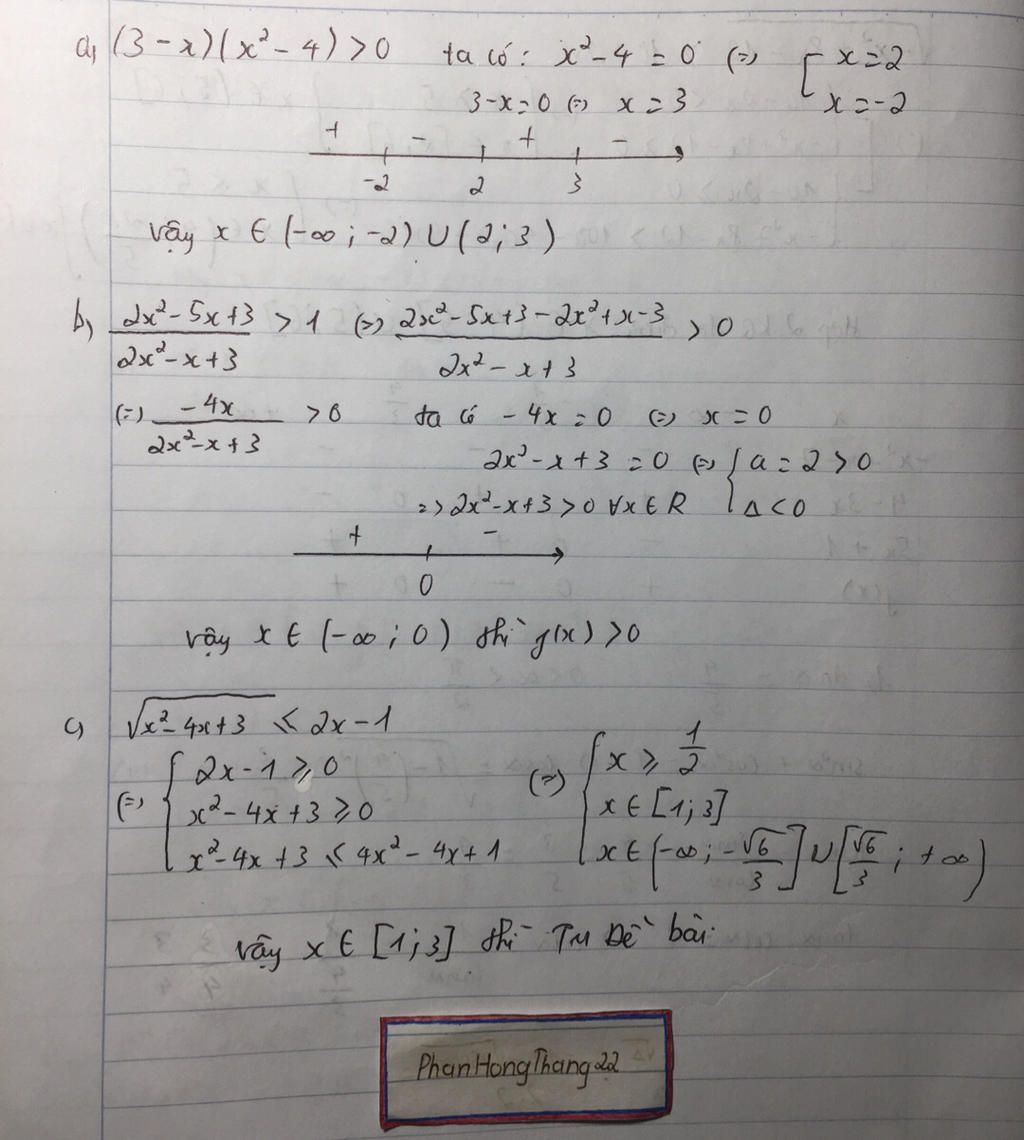 a, (3 - x)(x² - 4) > 0 ta có : x² - 4 = 0 (=) [ x = 2
x = -2
3 - x = 0 (=) x = 3
+ - + -
-2 2 3
vậy x ∈ (-∞ ; -2) ∪ (2 ; 3)
b, (2x² - 5x + 3)/(2x² - x + 3) > 1 (=) (2x² - 5x + 3 - 2x² + x - 3)/(2x² - x + 3) > 0
(=) (-4x)/(2x² - x + 3) > 0 ta có -4x = 0 (=) x = 0
2x² - x + 3 = 0 (=) { a = 2 > 0
=> 2x² - x + 3 > 0 ∀x ∈ R Δ < 0
+ -
0
vậy x ∈ (-∞ ; 0) thì f(x) > 0
c, √(x² - 4x + 3) ≤ 2x - 1
(=) { 2x - 1 ≥ 0 (=) { x ≥ 1/2
x² - 4x + 3 ≥ 0 x ∈ [1 ; 3]
x² - 4x + 3 ≤ 4x² - 4x + 1 x ∈ (-∞ ; -√6/3] ∪ [√6/3 ; +∞)
vậy x ∈ [1 ; 3] thì TM Đề bài.
PhanHongThang22